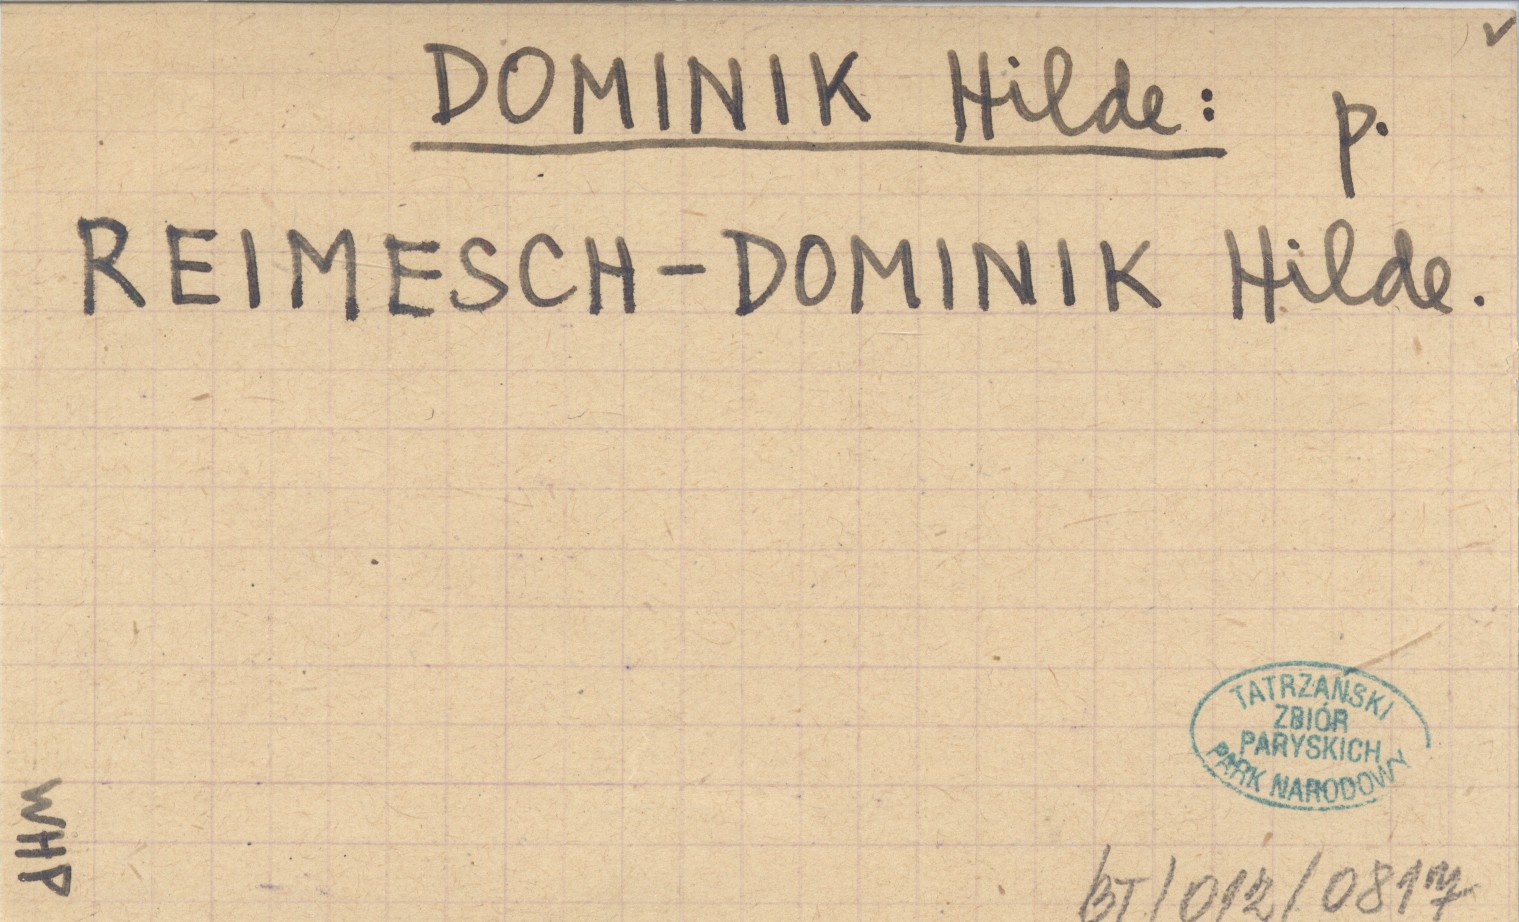 ✓
DOMINIK Hilde: p.
REIMESCH-DOMINIK Hilde.
TATRZAŃSKI
ZBIÓR
PARYSKICH
PARK NARODOWY
WHP
BT/012/0817